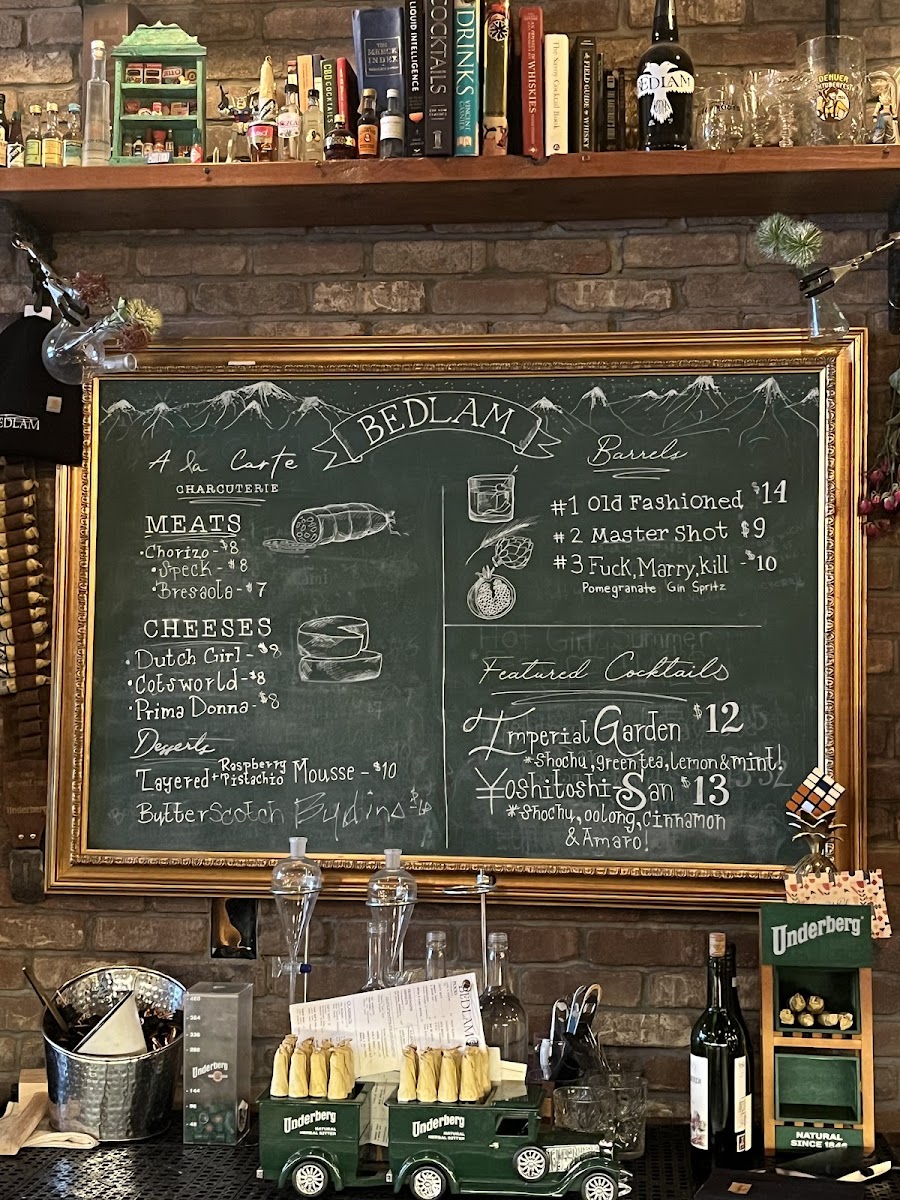 THE MERCK INDEX
LIQUID INTELLIGENCE
COCKTAILS
DRINKS
VINCENT
WHISKIES
The Savoy Cocktail Book
A FIELD GUIDE to WHISKY
CBD COCKTAILS
BEDLAM
DENVER
OKTOBERFEST
EDLAM
BEDLAM
A la Carte
CHARCUTERIE
MEATS
•Chorizo-$8
•Speck-$8
•Bresaola-$7
CHEESES
•Dutch Girl-$8
•Cotsworld-$8
•Prima Donna-$8
Desserts
Layered Raspberry + Pistachio Mousse - $10
ButterScotch
Barrels
#1 Old Fashioned $14
#2 Master Shot $9
#3 Fuck, Marry, kill -$10
Pomegranate Gin Spritz
Hot Girl Summer
Featured Cocktails
Imperial Garden $12
*Shochu, green tea, lemon & mint!
Yoshitoshi-San $13
*Shochu, oolong, Cinnamon
& Amaro!
Underberg
Underberg
BEDLAM
Underberg
NATURAL
HERBAL BITTER
Underberg
NATURAL
HERBAL BITTER
Underberg
NATURAL
SINCE 1846